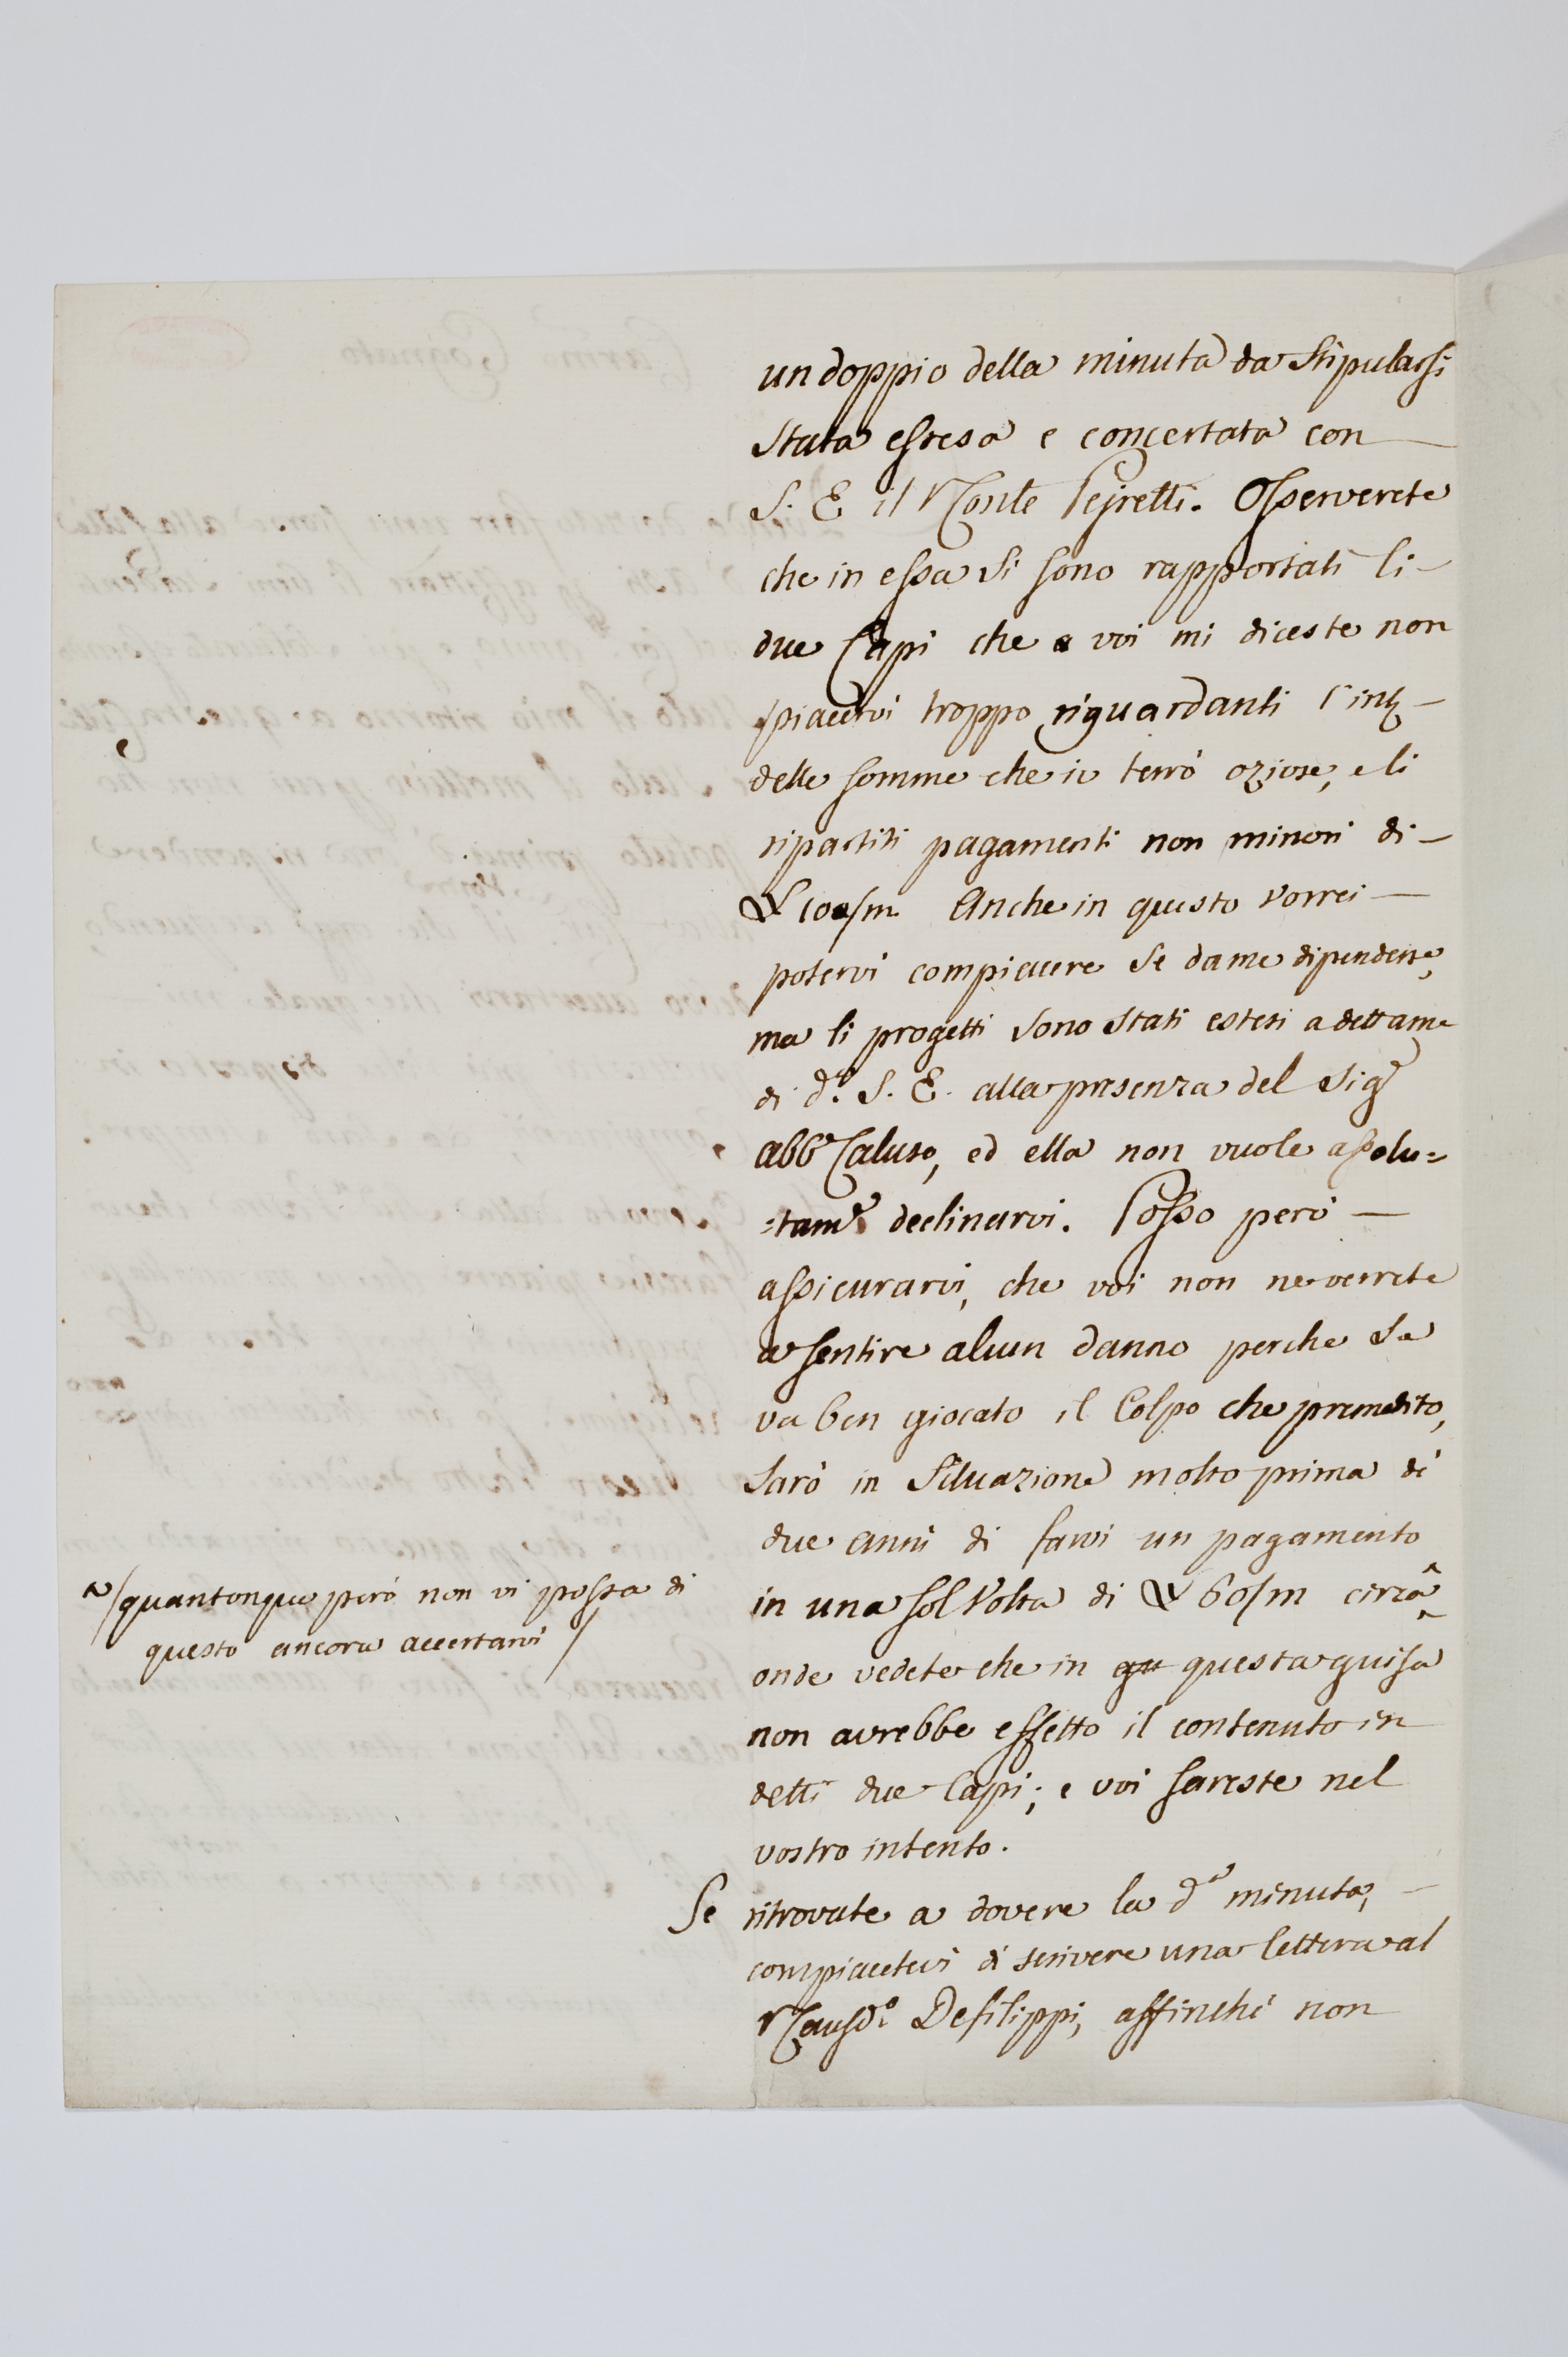 un doppio della minuta da stipularsi
stata estesa e concertata con
S. E il Conte Pejretti. Osserverete
che in essa si sono rapportati li
due Capi che voi mi diceste non
piacervi troppo riguardanti l'
delle somme che io terrò oziose, e li
ripartiti pagamenti non minori di
Anche in questo vorrei
potervi compiacere se da me dipendesse,
ma li progetti sono stati estesi a dettame
di d.ª S. E. alla presenza del Sigʳ
abbᵉ Caluso, ed ella non vuole assolu=
=tamᵉ declinarvi. Posso però
assicurarvi, che voi non ne verrete
a sentire alcun danno perche se
va ben giocato il Colpo che premedito,
sarò in situazione molto prima di
due anni di farvi un pagamento
in una sol volta di 60/m circa ^
^/quantonque però non vi possa di
questo ancora accertarvi/
onde vedete che in qu questa guisa
non avrebbe effetto il contenuto in
detti due Capi; e voi sareste nel
vostro intento.
Se ritrovate a dovere la d.ª minuta,
compiacetevi di scrivere una lettera al
Causd.º Defilippi, affinché non